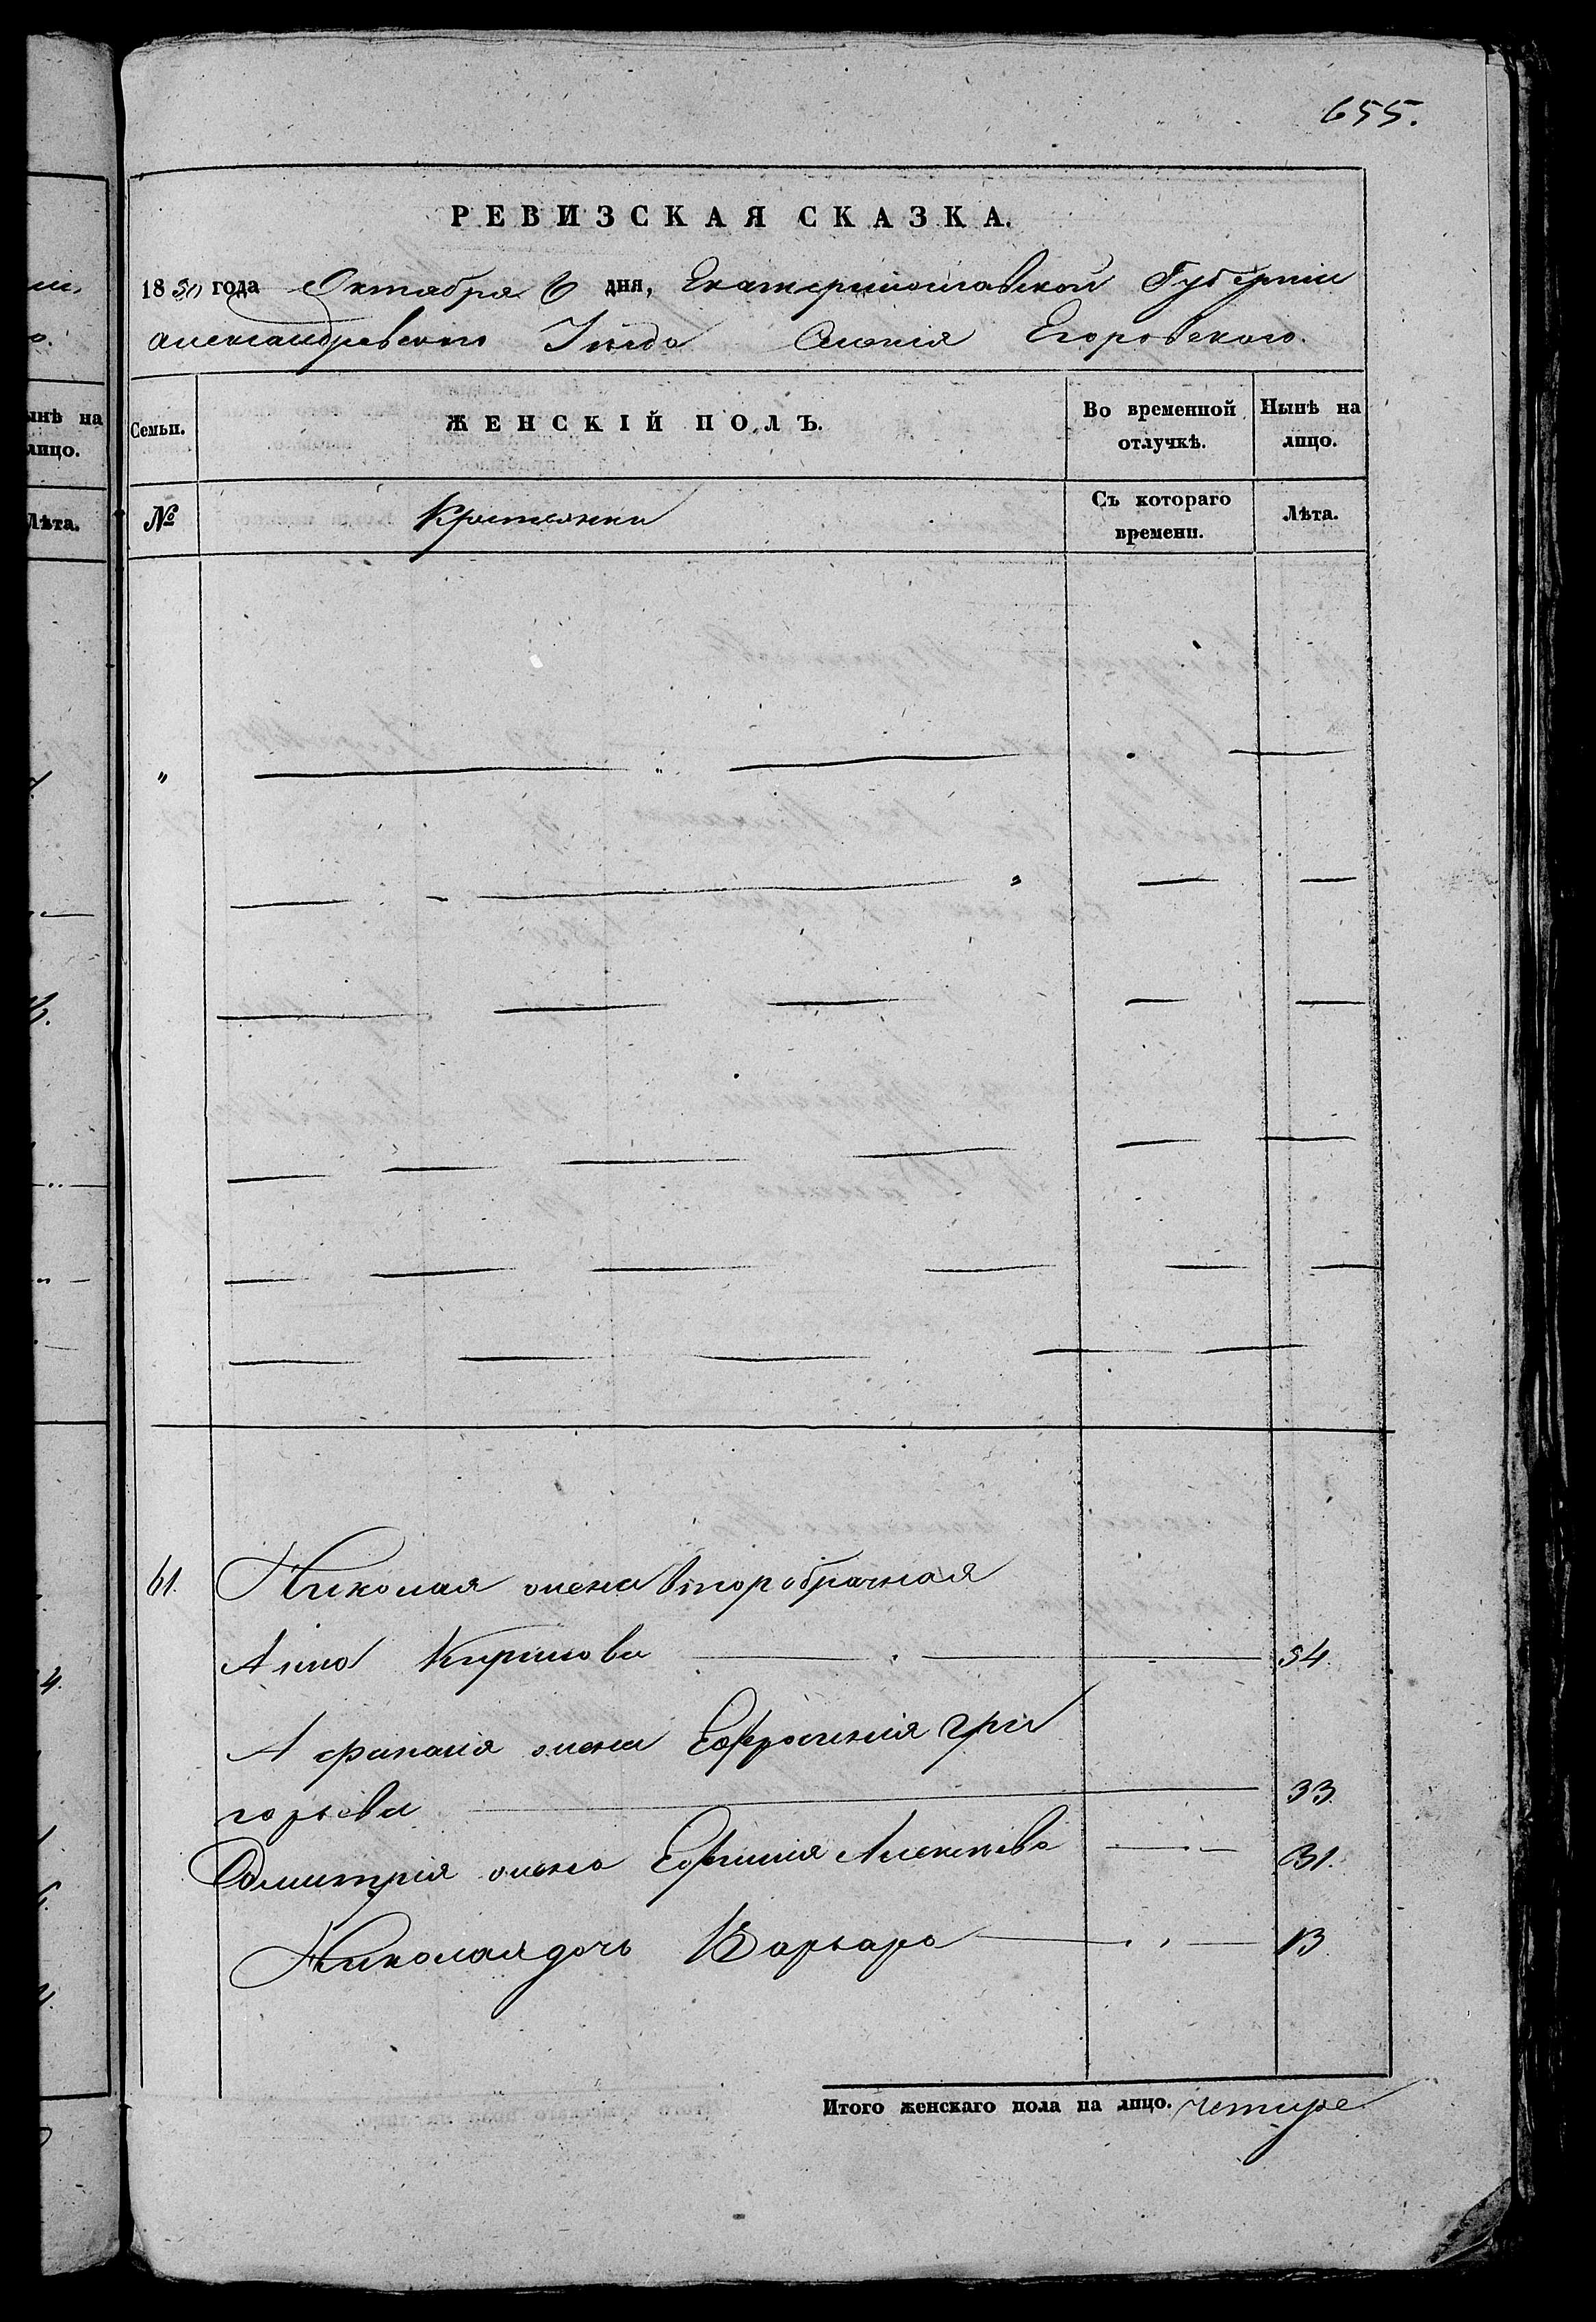 655.
РЕВИЗСКАЯ СКАЗКА.
1850 года Октября 6 дня, Екатеринославской Губерніи
Александровского Уезда Селенія Егоровского.
Семьи. ЖЕНСКІЙ ПОЛЪ. Во временной отлучкѣ. Нынѣ на лицо.
№ Крестьянки Съ котораго времени. Лѣта.
61. Николая жена второбрачная
Анна Кирилова 54.
Афанасія жена Ефросинія Гри
горьева 33.
Дмитрія жена Ефимія Алексѣева 31.
Николая дочь Варвара 13.
Итого женскаго пола на лицо. четыре
ынѣ на
лицо.
Лѣта.